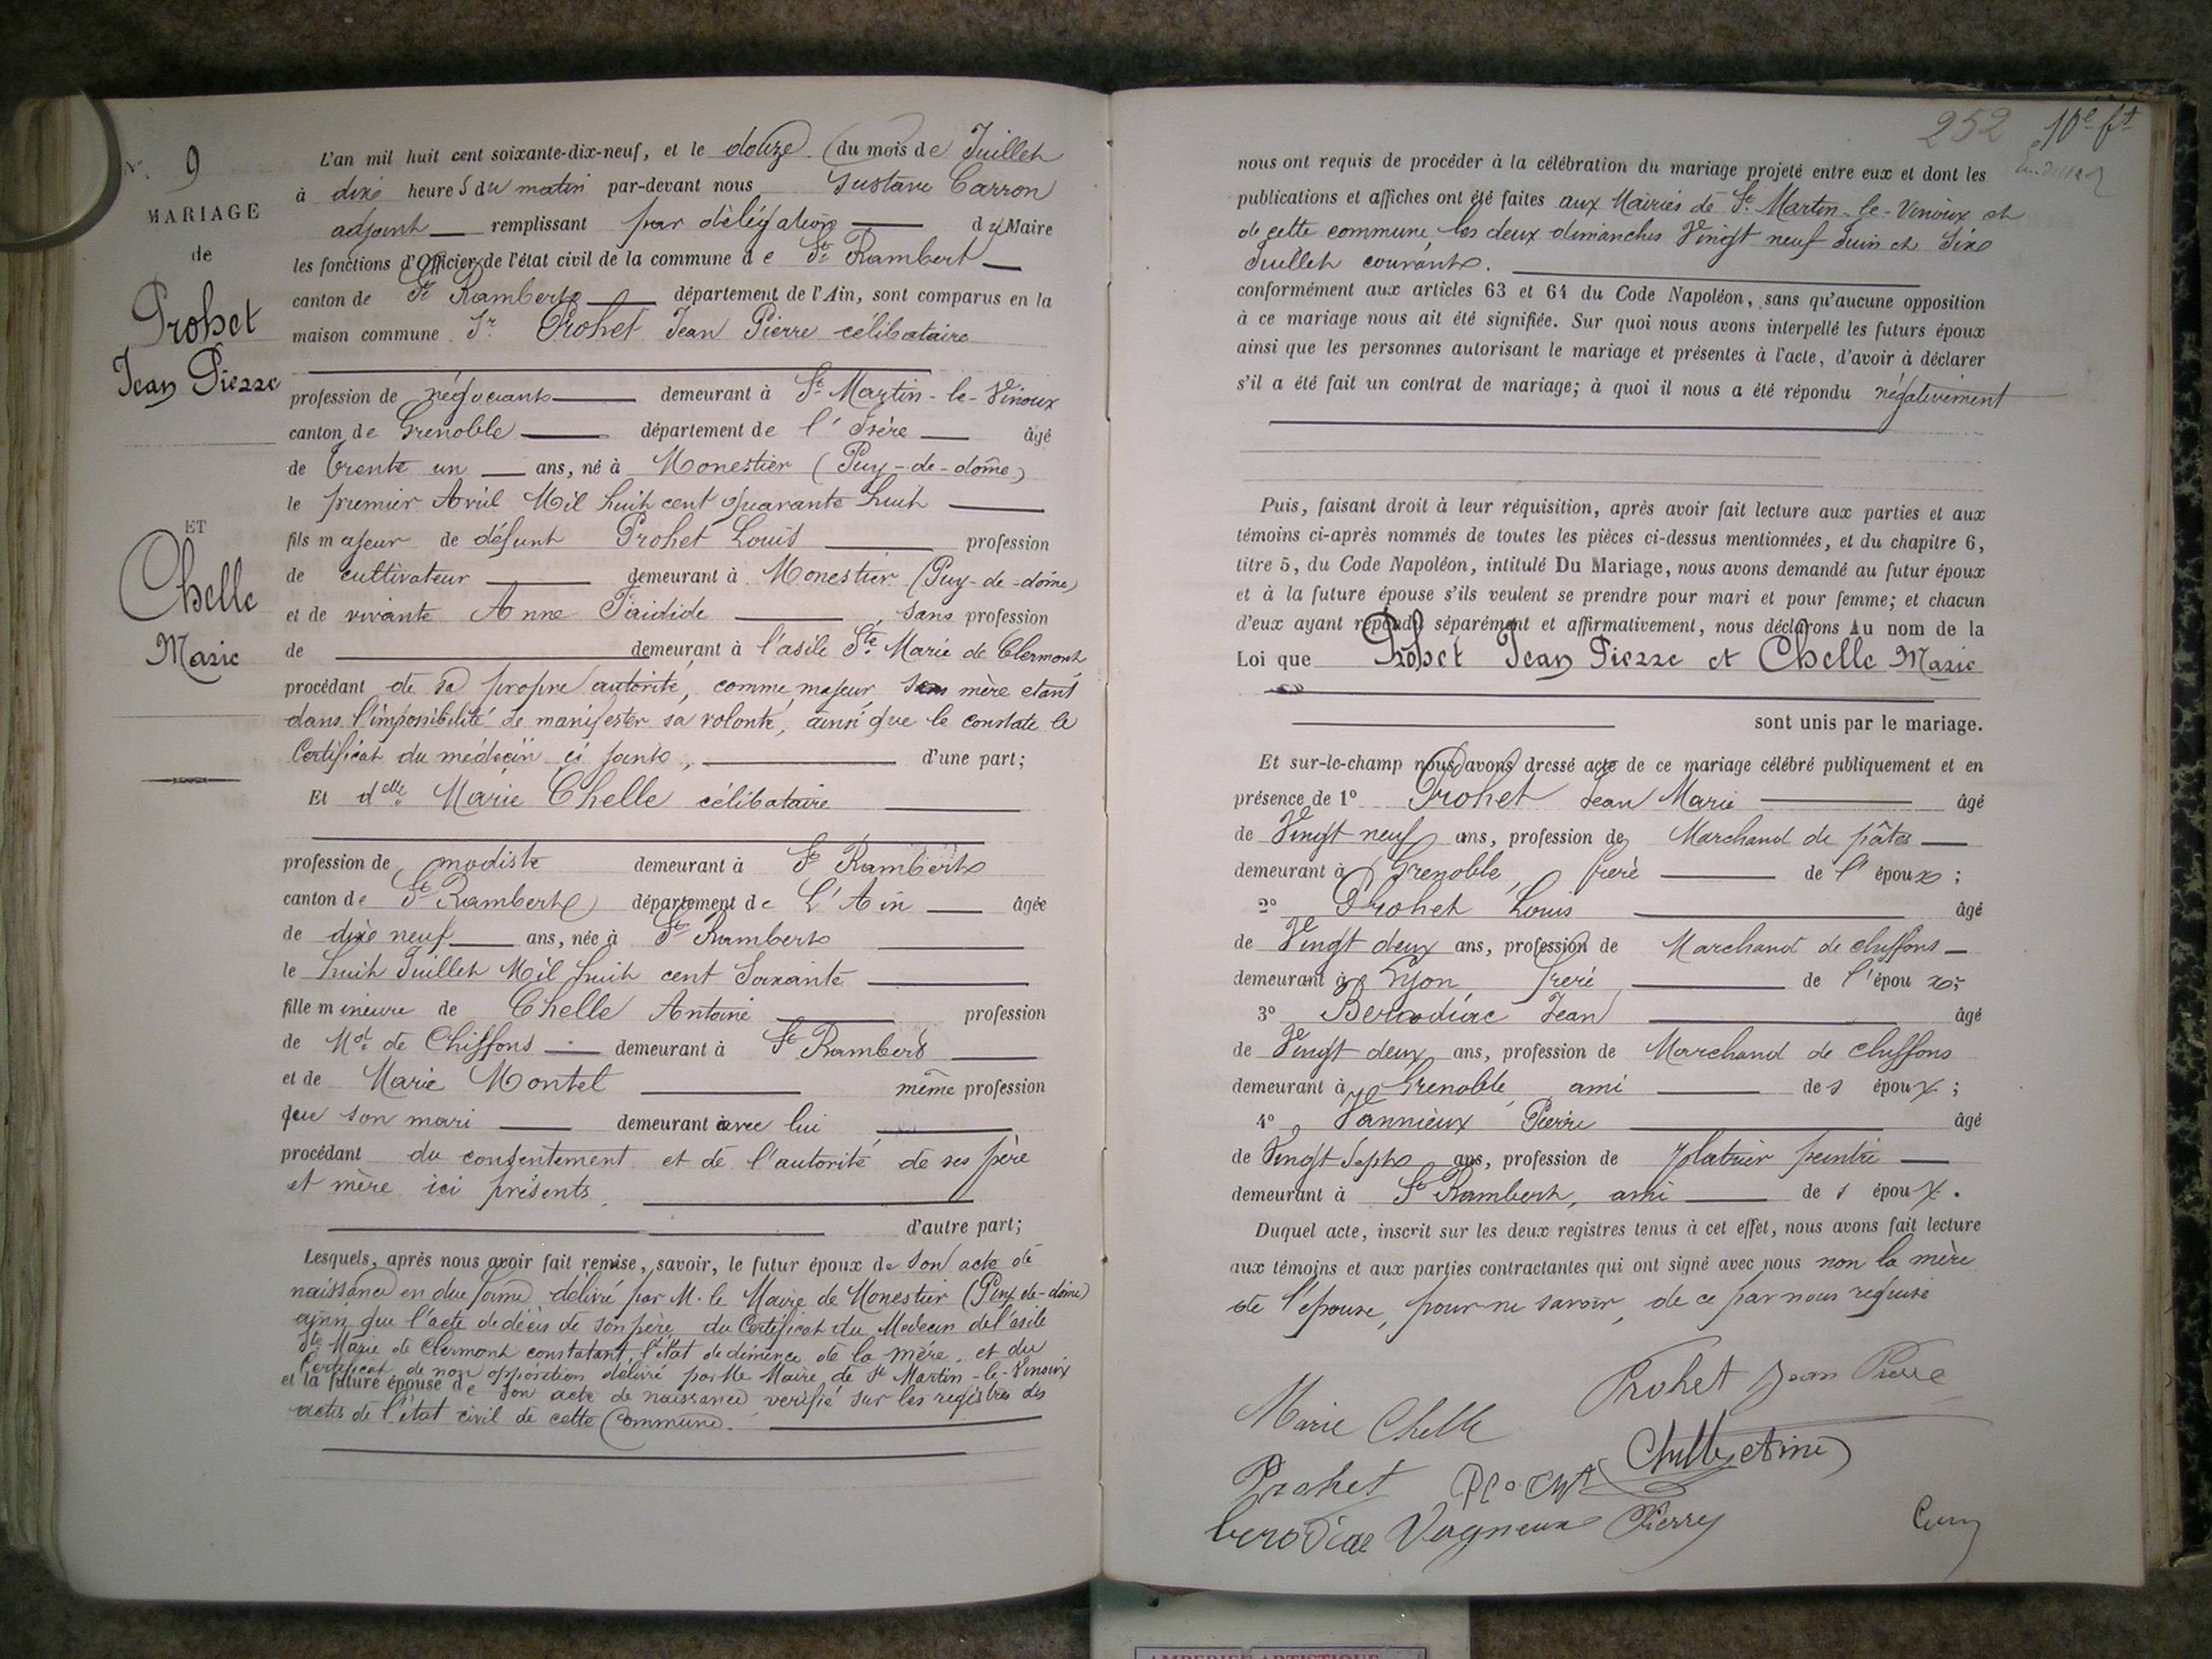 N° 9
MARIAGE
de
Prohet
Jean Pierre
ET
Chelle
Marie
L'an mil huit cent soixante-dix-neuf, et le douze du mois de Juillet
à dix heures du matin par-devant nous Gustave Carron
adjoint remplissant par délégation du Maire
les fonctions d'Officier de l'état civil de la commune de St Rambert
canton de St Rambert département de l'Ain, sont comparus en la
maison commune Sr Prohet Jean Pierre célibataire
profession de négociant demeurant à St Martin-le-Vinoux
canton de Grenoble département de l'Isère âgé
de trente un ans, né à Monestier (Puy-de-dôme)
le premier Avril Mil huit cent quarante huit
fils majeur de défunt Prohet Louis profession
de cultivateur demeurant à Monestier (Puy-de-dôme)
et de vivante Anne sans profession
de demeurant à l'asile Ste Marie de Clermont
procédant de sa propre autorité, comme majeur, sa mère etant
dans l'impossibilité de manifester sa volonté, ainsi que le constate le
Certificat du médecin ci joint, d'une part;
Et delle Marie Chelle célibataire
profession de modiste demeurant à St Rambert
canton de St Rambert département de L'Ain âgée
de dix neuf ans, née à St Rambert
le huit Juillet Mil huit cent Soixante
fille mineure de Chelle Antoine profession
de Md de Chiffons demeurant à St Rambert
et de Marie Montel même profession
que son mari demeurant avec lui
procédant du consentement et de l'autorité de ses père
et mère ici présents
d'autre part;
Lesquels, après nous avoir fait remise, savoir, le futur époux de son acte de
naissance en due forme délivré par M. le Maire de Monestier (Puy-de-dôme)
ainsi que l'acte de décès de son père, du Certificat du Medecin de l'asile
Ste Marie de Clermont constatant l'état de démence de la mère, et du
Certificat de non opposition délivré par Mr le Maire de St Martin-le-Vinoux
et la future épouse de son acte de naissance verifié sur les registres des
actes de l'état civil de cette Commune.
252 10e ft
nous ont requis de procéder à la célébration du mariage projeté entre eux et dont les
publications et affiches ont été faites aux Mairies de St Martin-le-Vinoux et
de cette commune, les deux dimanches Vingt neuf Juin et Six
Juillet courant.
conformément aux articles 63 et 64 du Code Napoléon, sans qu'aucune opposition
à ce mariage nous ait été signifiée. Sur quoi nous avons interpellé les futurs époux
ainsi que les personnes autorisant le mariage et présentes à l'acte, d'avoir à déclarer
s'il a été fait un contrat de mariage; à quoi il nous a été répondu négativement
Puis, faisant droit à leur réquisition, après avoir fait lecture aux parties et aux
témoins ci-après nommés de toutes les pièces ci-dessus mentionnées, et du chapitre 6,
titre 5, du Code Napoléon, intitulé Du Mariage, nous avons demandé au futur époux
et à la future épouse s'ils veulent se prendre pour mari et pour femme; et chacun
d'eux ayant répondu séparément et affirmativement, nous déclarons Au nom de la
Loi que Prohet Jean Pierre et Chelle Marie
sont unis par le mariage.
Et sur-le-champ nous avons dressé acte de ce mariage célébré publiquement et en
présence de 1° Prohet Jean Marie âgé
de Vingt neuf ans, profession de Marchand de pâtes
demeurant à Grenoble, frère de l'époux;
2° Prohet Louis âgé
de Vingt deux ans, profession de Marchand de chiffons
demeurant à Lyon frère de l'époux;
3° Jean âgé
de Vingt deux ans, profession de Marchand de chiffons
demeurant à Grenoble, ami des époux;
4° Vannieux Pierre âgé
de Vingt Sept ans, profession de platrier peintre
demeurant à St Rambert, ami des époux.
Duquel acte, inscrit sur les deux registres tenus à cet effet, nous avons fait lecture
aux témoins et aux parties contractantes qui ont signé avec nous non la mère
de l'épouse, pour ne savoir, de ce par nous requise
Prohet Jean Pierre
Marie Chelle
Prohet
Pierre
AMBERIEU ARTISTIQUE